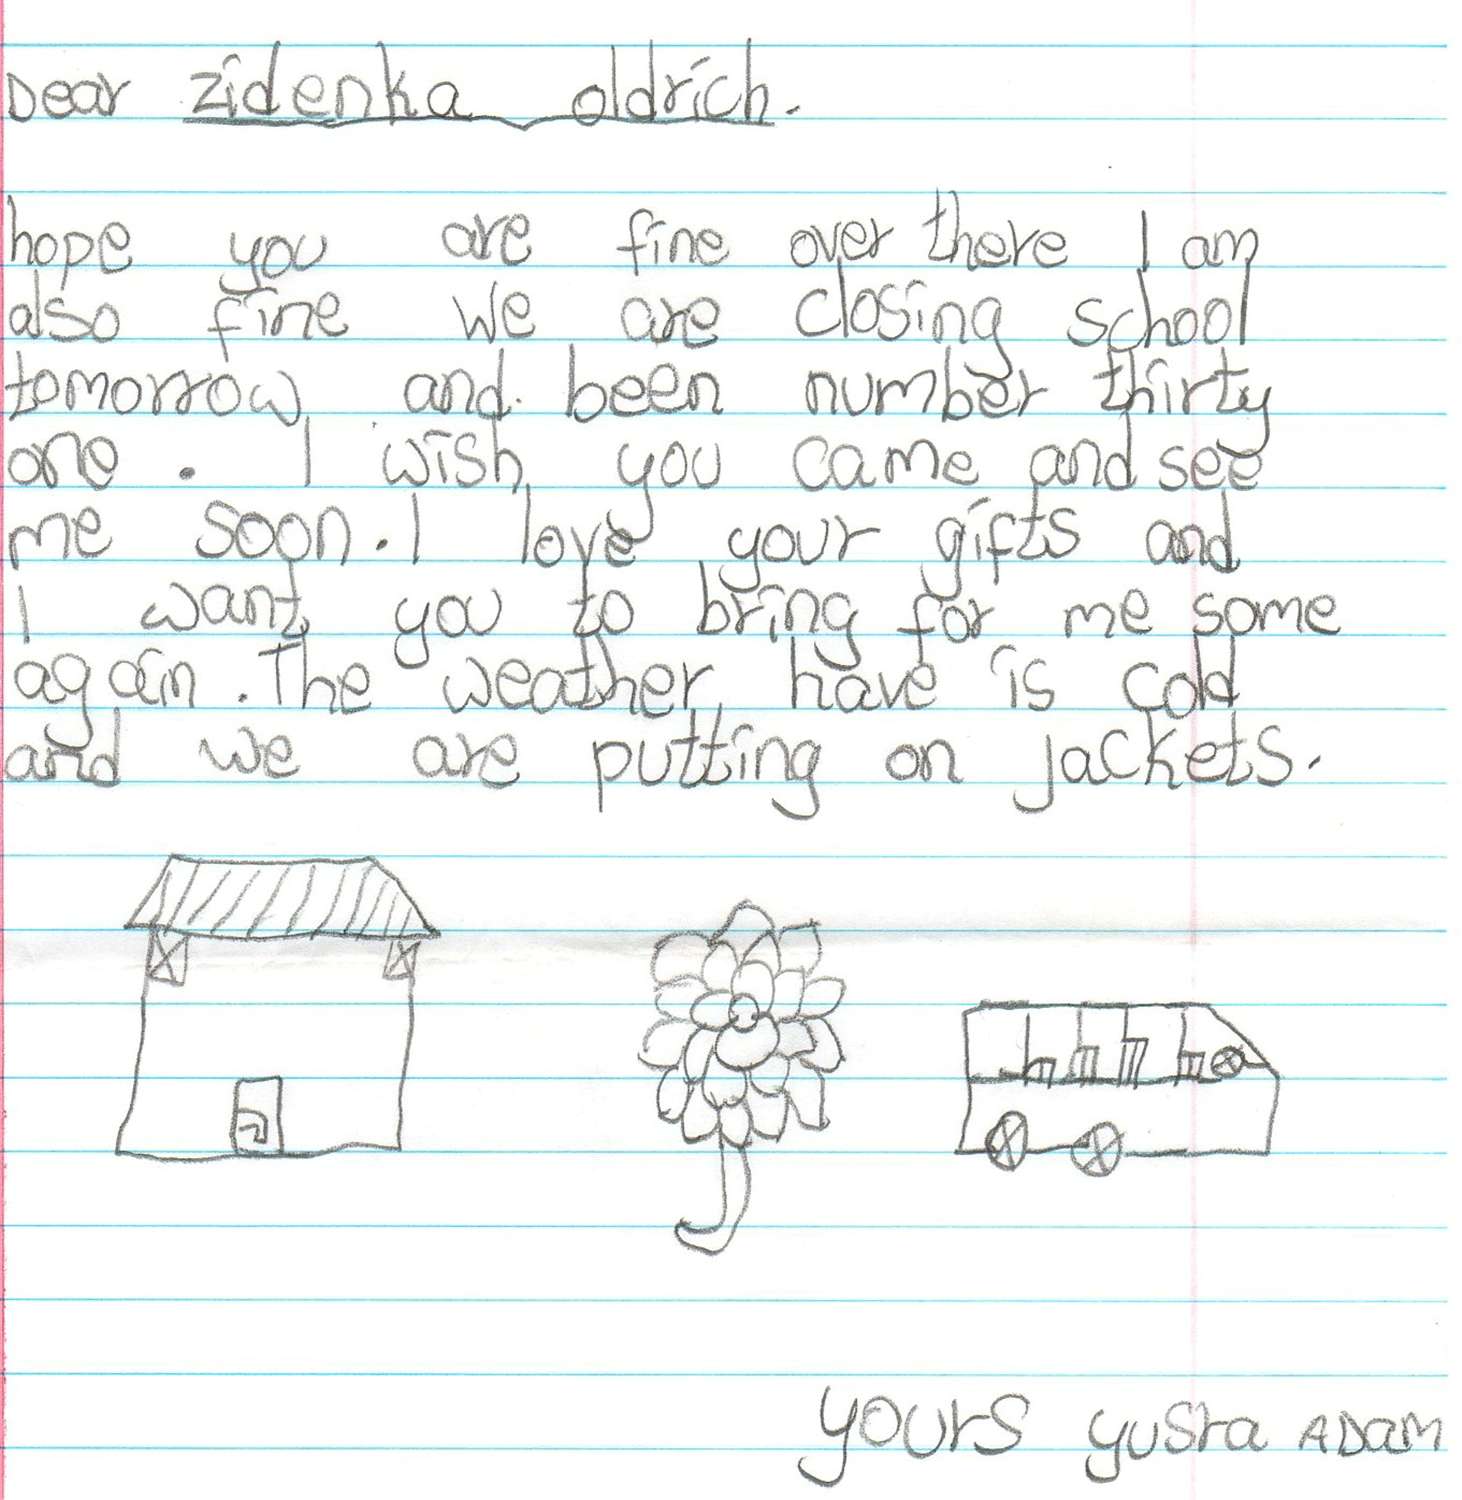 Dear zidenka oldrich.
hope you are fine over there I am
also fine we are closing school
tomorrow and been number thirty
one. I wish you came and see
me soon. I love your gifts and
I want you to bring for me some
again. The weather have is cold
and we are putting on jackets.
yours yusra ADAM